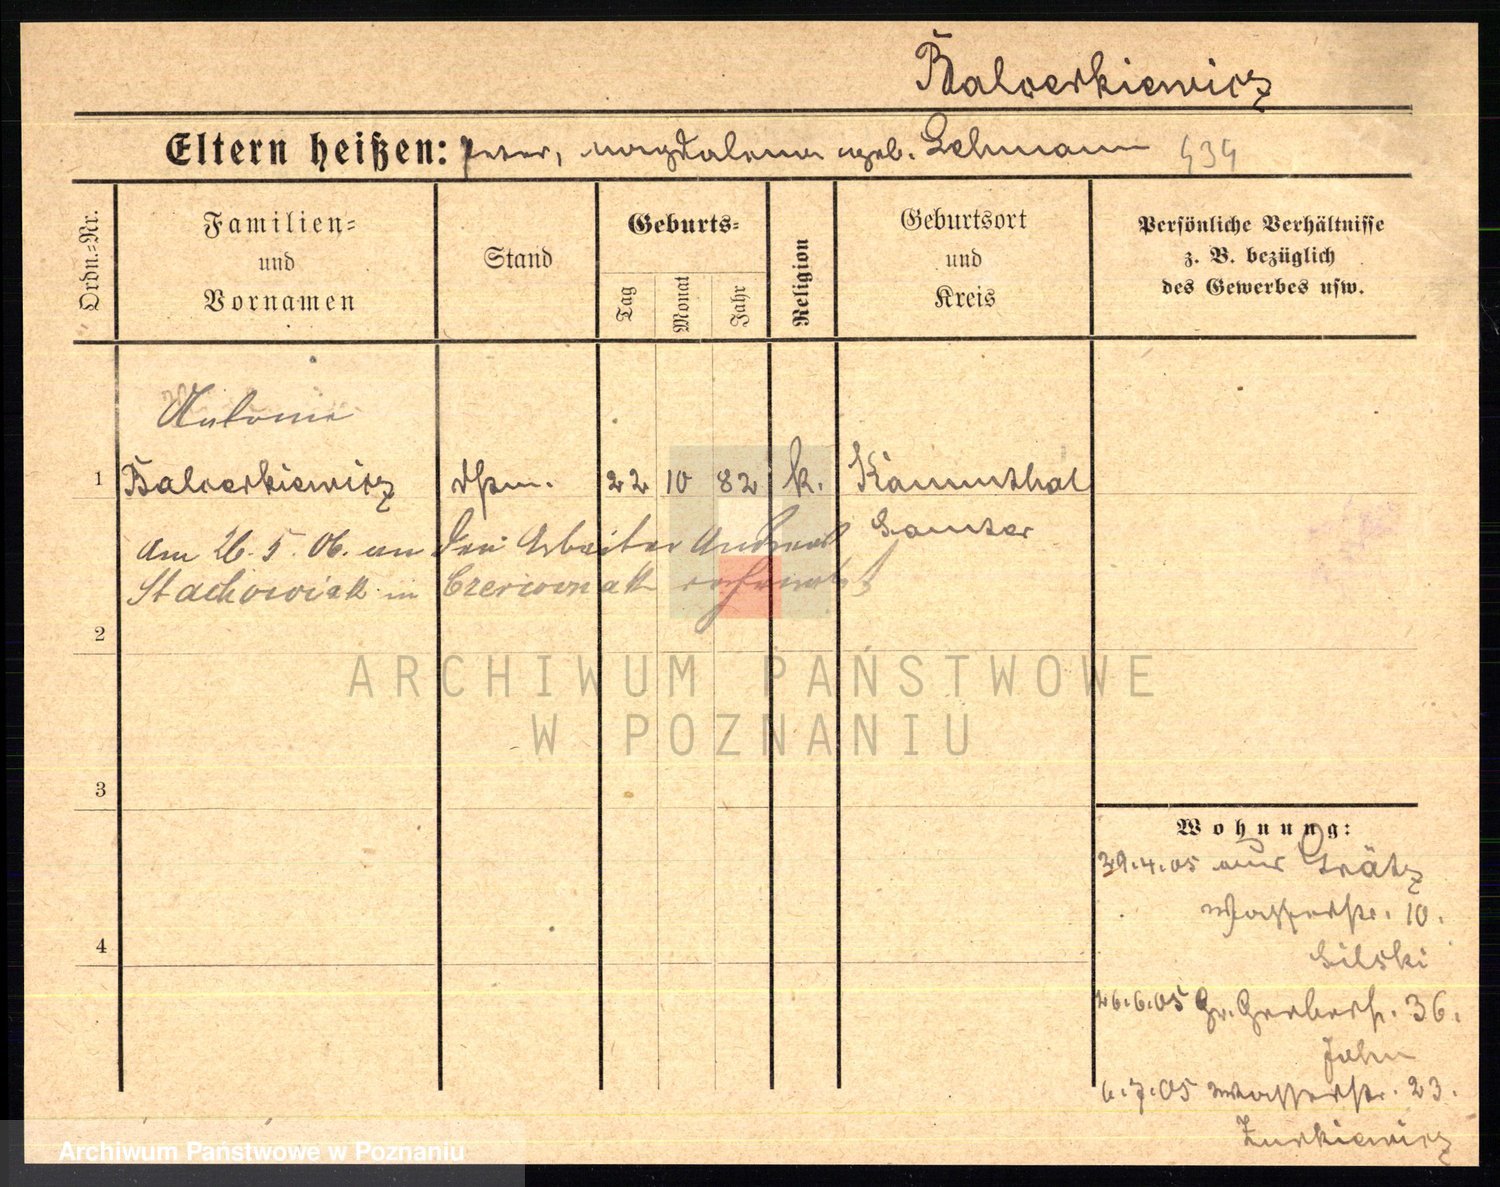 Balcerkiewicz
Eltern heißen: Peter, Magdalena geb. Lehmann 434
Ordn.-Nr.
Familien-
und
Vornamen
Stand
Geburts-
Tag
Monat
Jahr
Religion
Geburtsort
und
Kreis
Persönliche Verhältnisse
z. B. bezüglich
des Gewerbes usw.
Antonie
1 Balcerkiewicz 22 10 82 k. Kammthal
Samter
am 26.5.06. an den Arbeiter Andreas
Stachowiak in Czerwonak verheirat.
2
3
4
ARCHIWUM PAŃSTWOWE
W POZNANIU
Wohnung:
29.4.05 aus Grätz
Wasserstr. 10.
Gilski
26.6.05 Gr. Gerberstr. 36.
Jahn
6.7.05 Wasserstr. 23.
Zurkiewicz
Archiwum Państwowe w Poznaniu